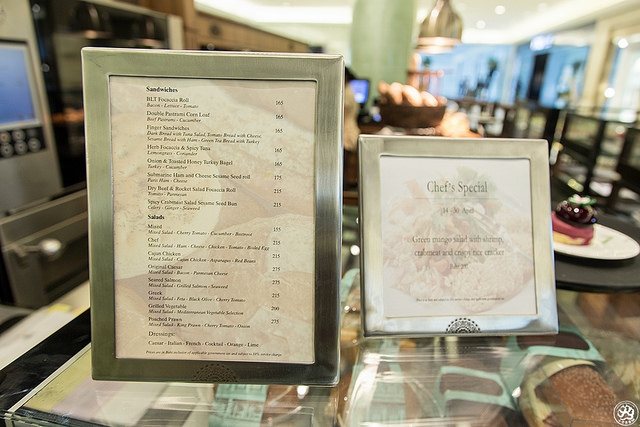 Sandwiches
BLT Focaccia Roll 165
Bacon - Lettuce - Tomato
Double Pastrami Corn Loaf 165
Beef Pastrami - Cucumber
Finger Sandwiches 165
Dark Bread with Tuna Salad, Tomato Bread with Cheese,
Sesame Bread with Ham - Green Tea Bread with Turkey
Herb Focaccia & Spicy Tuna 165
Lemongrass - Coriander
Onion & Toasted Honey Turkey Bagel 165
Turkey - Cucumber
Submarine Ham and Cheese Sesame Seed roll 175
Paris Ham - Cheese
Dry Beef & Rocket Salad Focaccia Roll 215
Tomato - Parmesan
Spicy Crabmeat Salad Sesame Seed Bun 215
Celery - Ginger - Seaweed
Salads
Mixed 155
Mixed Salad - Cherry Tomato - Cucumber - Beetroot
Chef 215
Mixed Salad - Ham - Cheese - Chicken - Tomato - Boiled Egg
Cajun Chicken 215
Mixed Salad - Cajun Chicken - Asparagus - Red Beans
Original Caesar 275
Mixed Salad - Bacon - Parmesan Cheese
Seared Salmon 275
Mixed Salad - Grilled Salmon - Seaweed
Greek 215
Mixed Salad - Feta - Black Olive - Cherry Tomato
Grilled Vegetable 200
Mixed Salad - Mediterranean Vegetable Selection
Poached Prawn 275
Mixed Salad - King Prawn - Cherry Tomato - Onion
Dressings:
Caesar - Italian - French - Cocktail - Orange - Lime
Prices are in Baht exclusive of applicable government tax and subject to 10% service charge
Chef's Special
April
Green mango salad with shrimp,
crabmeat and crispy rice cracker